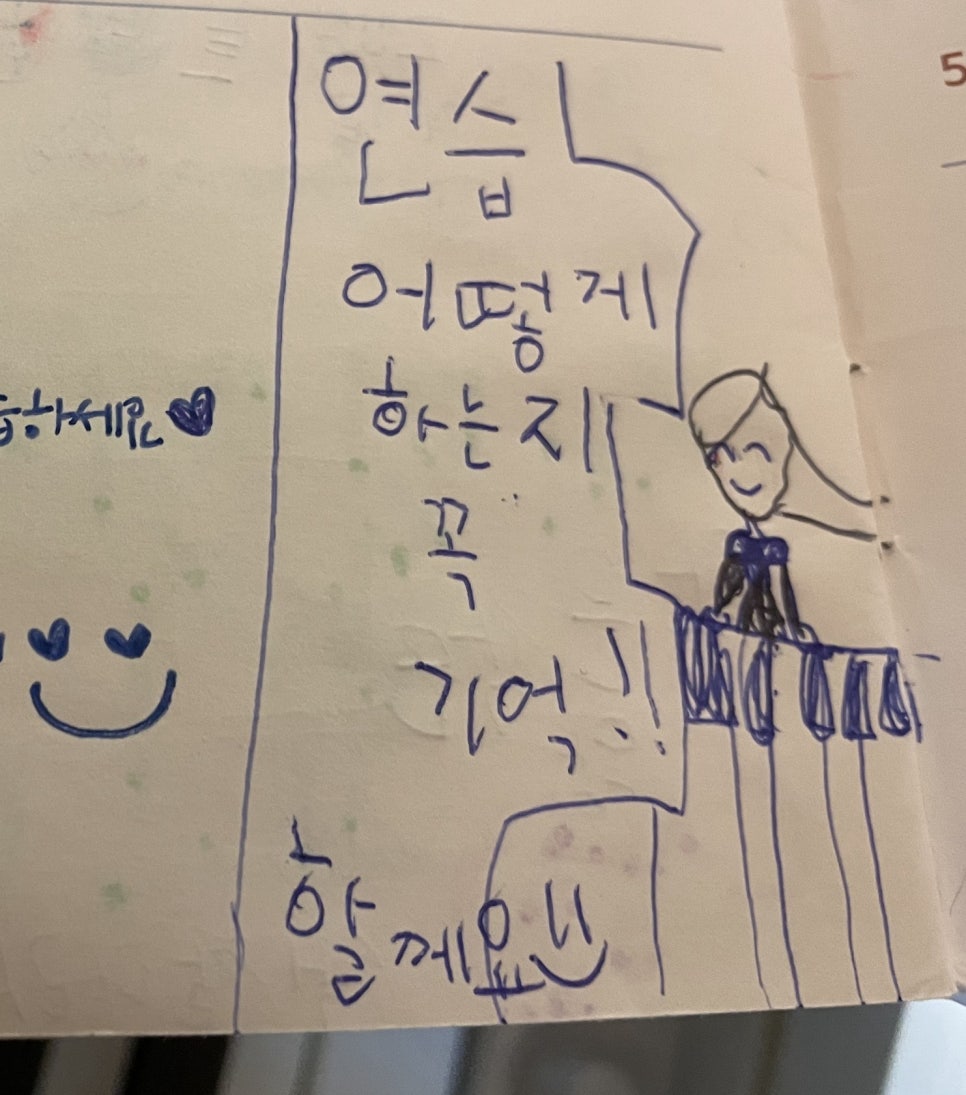 연습
어떻게
하는지
꼭
기억!!
할께요
하세요♥
5